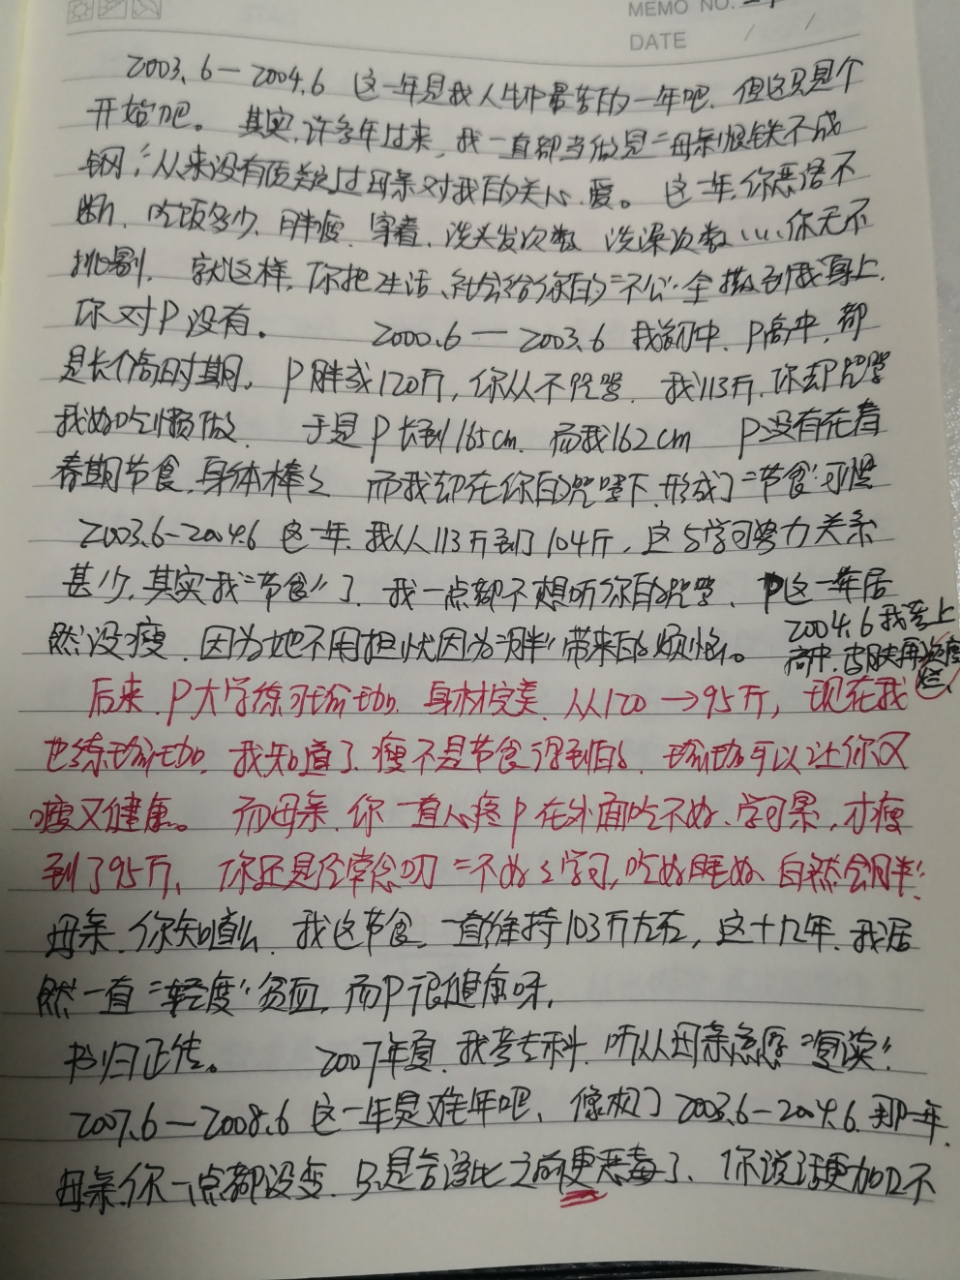 MEMO NO.
DATE / /
2003.6—2004.6 这一年是我人生中最苦的一年吧, 但这只是个
开始吧。 其实, 许多年过来, 我一直都当做是“母亲恨铁不成
钢”, 从来没有质疑过母亲对我的关心、爱。 这一年, 你恶语不
断, 吃饭多少、胖瘦、穿着、洗头发次数、洗澡次数……你无不
挑剔, 就这样, 你把生活、社会给你的“不公”全撒到我身上.
你对P没有。 2000.6—2003.6 我初中, P高中, 都
是长个高的时期, P胖或120斤, 你从不咒骂, 我113斤, 你却咒骂
我好吃懒做, 于是P长到165cm, 而我162cm P没有在青
春期节食, 身体棒棒 而我却在你的咒骂下, 形成了“节食”习惯
2003.6-2004.6 这一年, 我从113斤到了104斤, 这与学习努力关系
甚少, 其实我“节食”了, 我一点都不想听你的咒骂, P这一年居
然没瘦, 因为她不用担忧因为“胖”带来的烦恼。
2004.6 我考上
高中, 皮肤再次度
烂
后来, P大学练习瑜伽, 身材完美, 从120→95斤, 现在我
也练瑜伽, 我知道了, 瘦不是节食得到的, 瑜伽可以让你又
瘦又健康。 而母亲, 你一直心疼P在外面吃不好、学习累, 才瘦
到了95斤, 你还是经常念叨“不好好学习, 吃好睡好, 自然会胖”
母亲, 你知道么, 我这节食, 一直维持103斤左右, 这十几年, 我居
然一直“轻度”贫血, 而P很健康呀,
书归正传。 2007年夏, 我考专科, 听从母亲意愿“复读”
2007.6—2008.6 这一年是难年吧, 像极了2003.6-2004.6 那一年,
母亲, 你一点都没变, 只是言语比之前更恶毒了, 你说话更加不